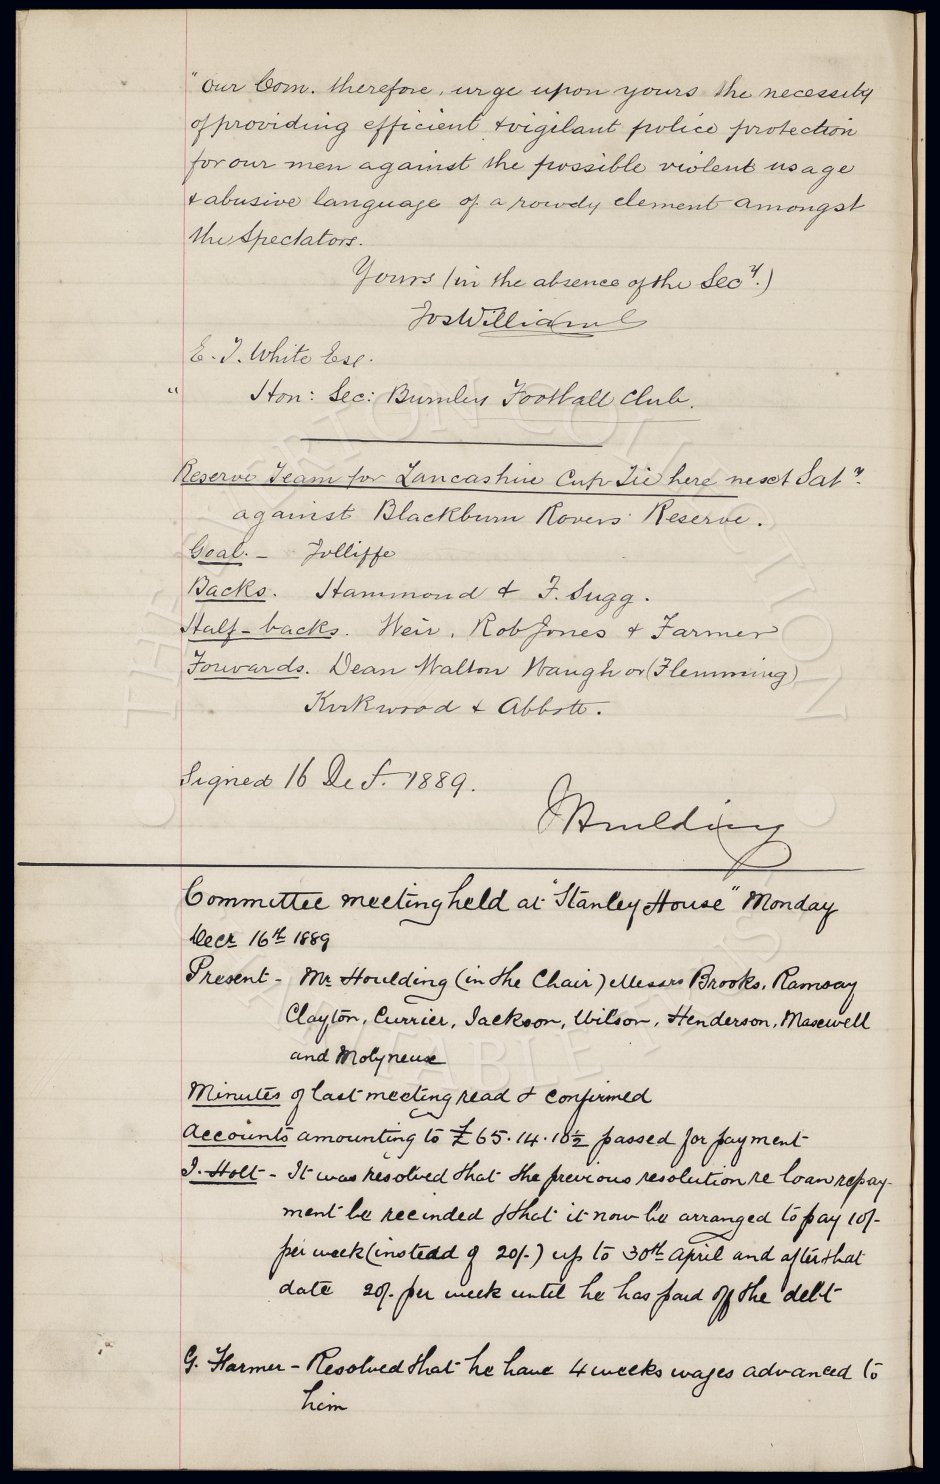 " Our Com. therefore, urge upon yours the necessity
of providing efficient & vigilant police protection
for our men against the possible violent usage
& abusive language of a rowdy element amongst
the spectators.
Yours (in the absence of the Secy.)
Jos Williams
E. J. White Esq.
" Hon: Sec: Burnley Football Club.
Reserve Team for Lancashire Cup Tie here next Saty.
against Blackburn Rovers Reserve.
Goal. - Jolliffe
Backs. Hammond & F. Sugg.
Half-backs. Weir, Rob Jones & Farmer
Forwards. Dean Walton Waugh or (Flemming)
Kirkwood & Abbott.
Signed 16 Dec. 1889.
J Houlding
Committee meeting held at "Stanley House" Monday
Decr 16th 1889
Present - Mr Houlding (in the Chair) Messrs Brooks, Ramsay
Clayton, Currier, Jackson, Wilson, Henderson, Maxwell
and Molyneux
Minutes of last meeting read & confirmed
Accounts amounting to £65.14.10½ passed for payment
J. Holt - It was resolved that the previous resolution re loan repay-
ment be recinded & that it now be arranged to pay 10/-
per week (instead of 20/-) up to 30th April and after that
date 20/- per week until he has paid off the debt
G. Farmer - Resolved that he have 4 weeks wages advanced to
him
THE EVERTON COLLECTION
CHARITABLE TRUST